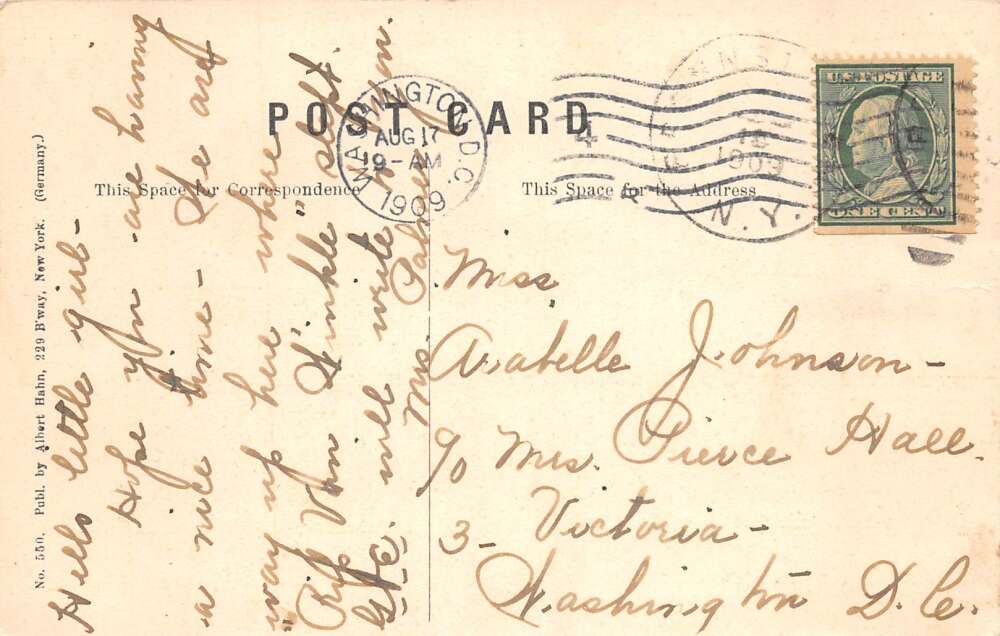 POST CARD
This Space for Correspondence
This Space for the Address
WASHINGTON, D.C.
AUG 17
9-AM
1909
1909
N.Y.
U.S. POSTAGE
ONE CENT
No. 550. Publ. by Albert Hahn, 229 B'way, New York. (Germany.)
Hello little girl-
Hope you are having
a nice time - We are
way up here where
"Rip Van Winkle" slept.
will write to you.
Mrs. Palmer
Miss
Arabelle Johnson-
c/o Mrs. Pierce Hall.
3- Victoria-
Washington D.C.